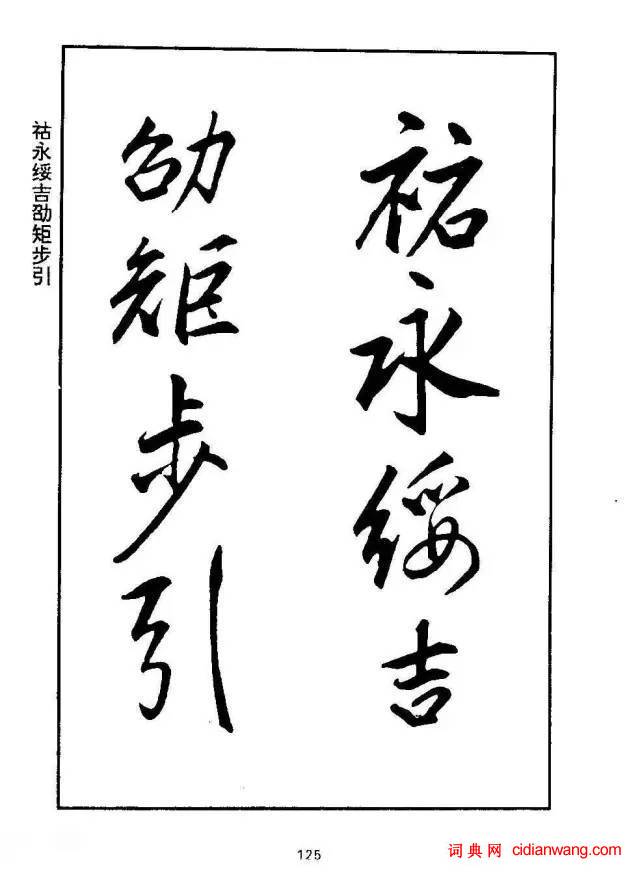 祐永绥吉
劭矩步引
祜永绥吉劭矩步引
125
词典网 cidianwang.com